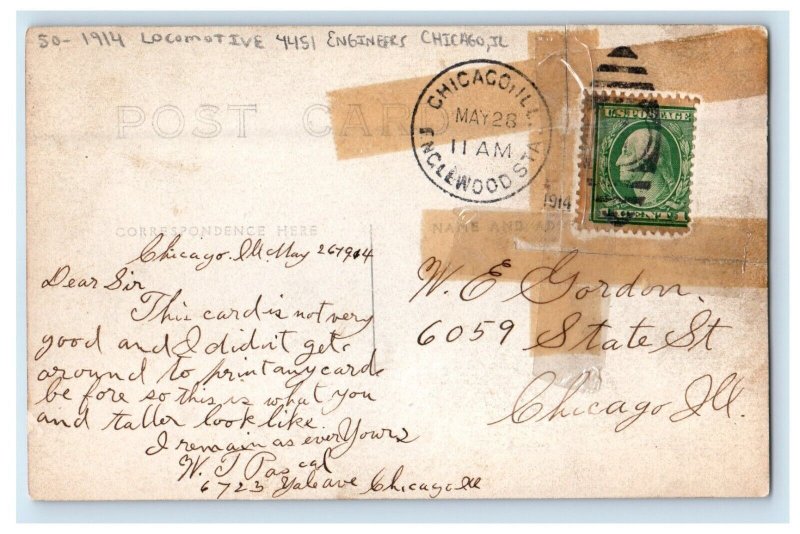 50- 1914 LOCOMOTIVE 4451 ENGINEERS CHICAGO, IL
POST CARD
CHICAGO, ILL.
MAY 28
11 AM
1914
ENGLEWOOD STA.
U.S. POSTAGE
1 CENT 1
CORRESPONDENCE HERE
NAME AND AD
Chicago Ill May 26 1914
Dear Sir
This card is not very
good and I didn't get
around to print any card
be fore so this is what you
and taller look like.
I remain as ever Yours
W. J Pascal
6723 Yale ave Chicago Ill
W. E Gordon.
6059 State St
Chicago Ill.